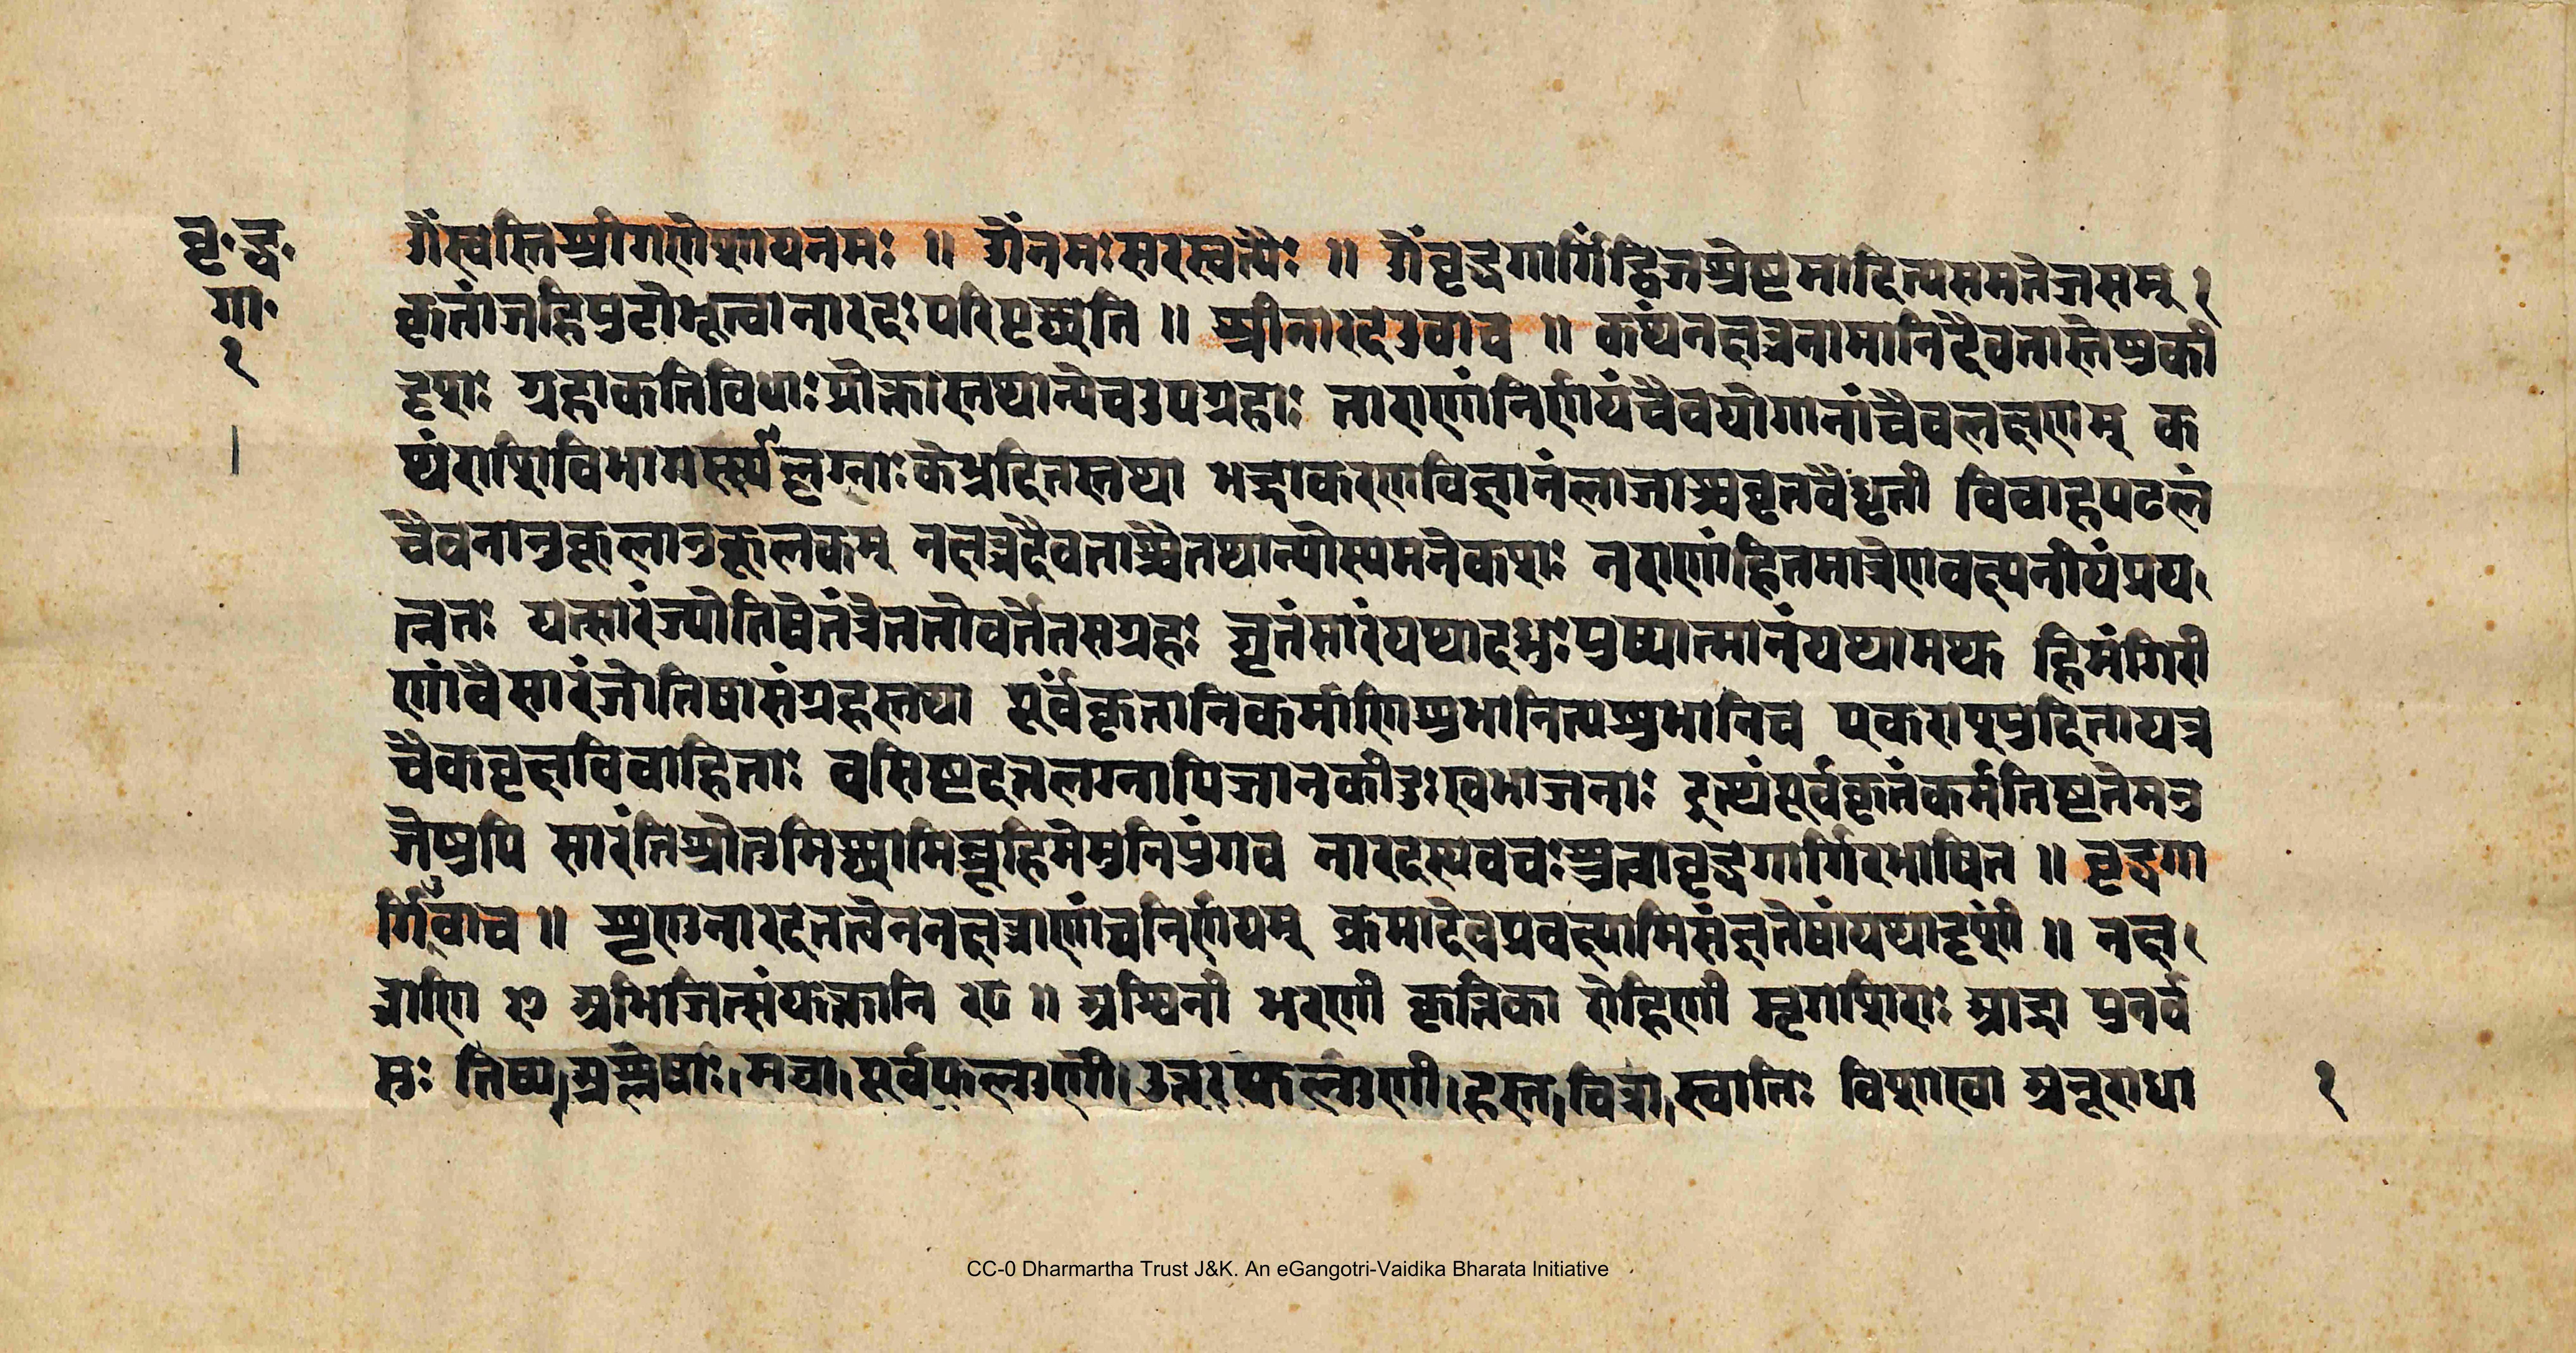 वृ॰द्ध॰
गा॰
१
ओंस्वस्तिश्रीगणेशायनमः ॥ ओंनमःसरस्वत्यैः ॥ ओंवृद्धगार्गिंद्विजश्रेष्टमादित्यसमतेजसम् १
कृतांजहिपुटोभूत्वानारदःपरिपृछ्यति ॥ श्रीनारदउवाच ॥ कथंनक्षत्रनामानिदैवतास्तेषुकी
दृषाः ग्रहाकतिविधाःप्रोक्तास्तथान्येचउपग्रहाः ताराणांनिर्णयंचैवयोगानांचैवलक्षणम् क
थंराशिविभाग लग्नाः तथा भद्राकरणविज्ञानंलाजाश्चवृतवैधृती विवाहपटलं
चैवनानुकूलानुकूलकम् नक्षत्रदैवताश्चैतथान्योस्यमनेकषाः नराणांहितमात्रेणवक्ष्यनीयंप्रय
त्नतः यत्सारंज्योतिषेतंत्रेततोवर्ततसग्रहः घृतंसारंयथादध्नुःपुष्पात्मानंयथामफ हिमंगिरी
णांवैसारंजोतिषासंग्रहस्तथा पूर्वंकृतानिकर्माणिशुभानित्यशुभानिच यत्र
चैकवृक्षविवाहिताः वसिष्टदतलग्नापिजानकीदुःखभाजनाः पूर्वकृतंकर्मतिष्टतेमनु
जेषुपि सारंतिश्रोतुमिछ्यामिब्रूहिमेमुनिपुंगव नारदस्यवचःश्रुत्वावृद्धगार्गिरभाषित ॥ वृद्धगा
र्गिरुवाच ॥ शृणुनारदतत्वेननक्षत्राणांचनिर्णयम् क्रमादेवप्रवक्ष्यामिसंज्ञतेषांयथादृषां ॥ नक्ष
त्राणि २७ अभिजित्संयक्तानि २८ ॥ अश्विनी भरणी कृत्तिका रोहिणी मृगशिराः आर्द्रा पुनर्व
सः तिष्य।अश्लेषाः।मघा।पूर्वफल्गुणी।उत्तरफल्गुणी।हस्त।चित्रा।स्वातिः विशाखा अनूराधा
१
CC-0 Dharmartha Trust J&K. An eGangotri-Vaidika Bharata Initiative